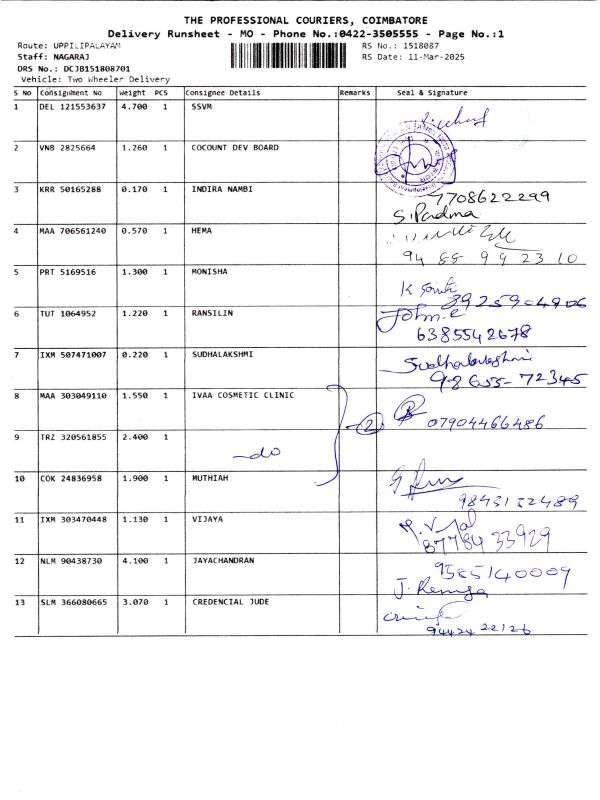 THE PROFESSIONAL COURIERS, COIMBATORE
Delivery Runsheet - MO - Phone No.:0422-3505555 - Page No.:1
Route: UPPILIPALAYAM RS No.: 1518087
Staff: NAGARAJ RS Date: 11-Mar-2025
DRS No.: DCJB151808701
Vehicle: Two Wheeler Delivery
S No Consignment No Weight PCS Consignee Details Remarks Seal & Signature
1 DEL 121553637 4.700 1 SSVM
2 VNB 2825664 1.260 1 COCOUNT DEV BOARD
3 KRR 50165288 0.170 1 INDIRA NAMBI 7708622299
S.Padma
4 MAA 706561240 0.570 1 HEMA
94 88 99 23 10
5 PRT 5169516 1.300 1 MONISHA
8925904906
6 TUT 1064952 1.220 1 RANSILIN John.e
6385542678
7 IXM 507471007 0.220 1 SUDHALAKSHMI Sudhalakshmi
98655-72345
8 MAA 303049110 1.550 1 IVAA COSMETIC CLINIC 2 07904466486
9 TRZ 320561855 2.400 1 -do
10 COK 24836958 1.900 1 MUTHIAH
9843132489
11 IXM 303470448 1.130 1 VIJAYA
87784 33929
12 NLM 90438730 4.100 1 JAYACHANDRAN 9585140009
J. Remya
13 SLM 366080665 3.070 1 CREDENCIAL JUDE
94424 22126